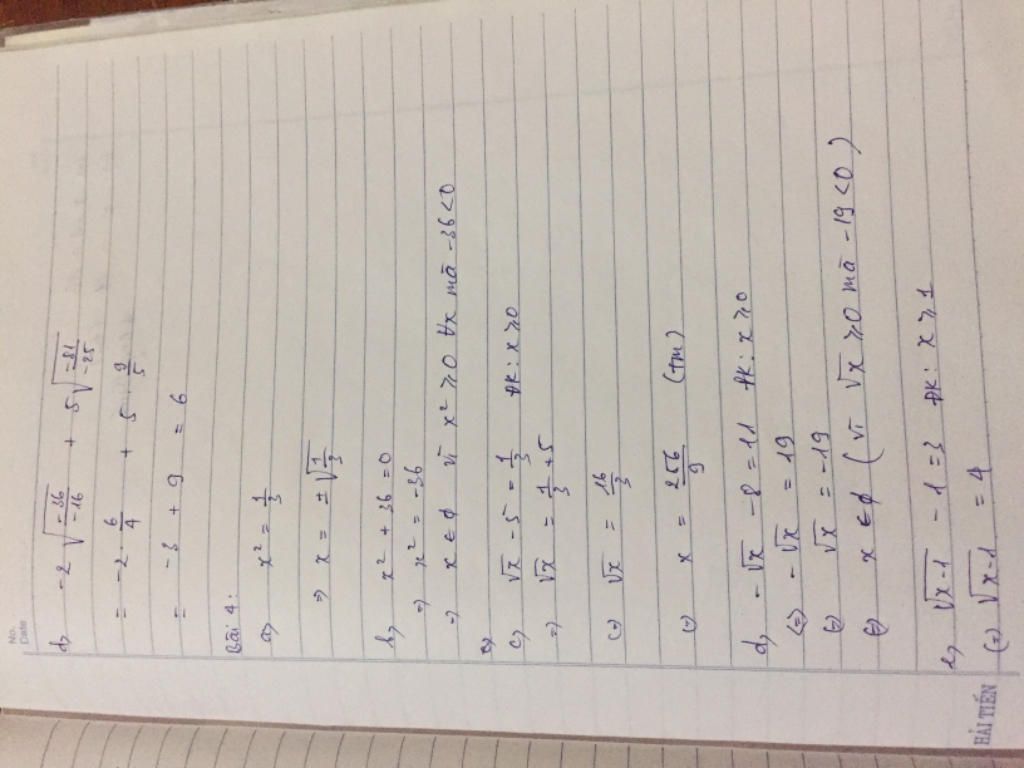 No.
Date
d, -2√(-36/-16) + 5√(-81/-25)
= -2 · 6/4 + 5 · 9/5
= -3 + 9 = 6
Bài 4:
a, x² = 1/3
=> x = ±√(1/3)
b, x² + 36 = 0
=> x² = -36
=> x ∈ ϕ vì x² ≥ 0 ∀x mà -36 < 0
c, √x - 5 = 1/3 ĐK: x ≥ 0
=> √x = 1/3 + 5
(=) √x = 16/3
(=) x = 256/9 (tm)
d, -√x - 8 = 11 ĐK: x ≥ 0
(=) -√x = 19
(=) √x = -19
(=) x ∈ ϕ (vì √x ≥ 0 mà -19 < 0)
e, √(x-1) - 1 = 3 ĐK: x ≥ 1
(=) √(x-1) = 4
HẢI TIẾN